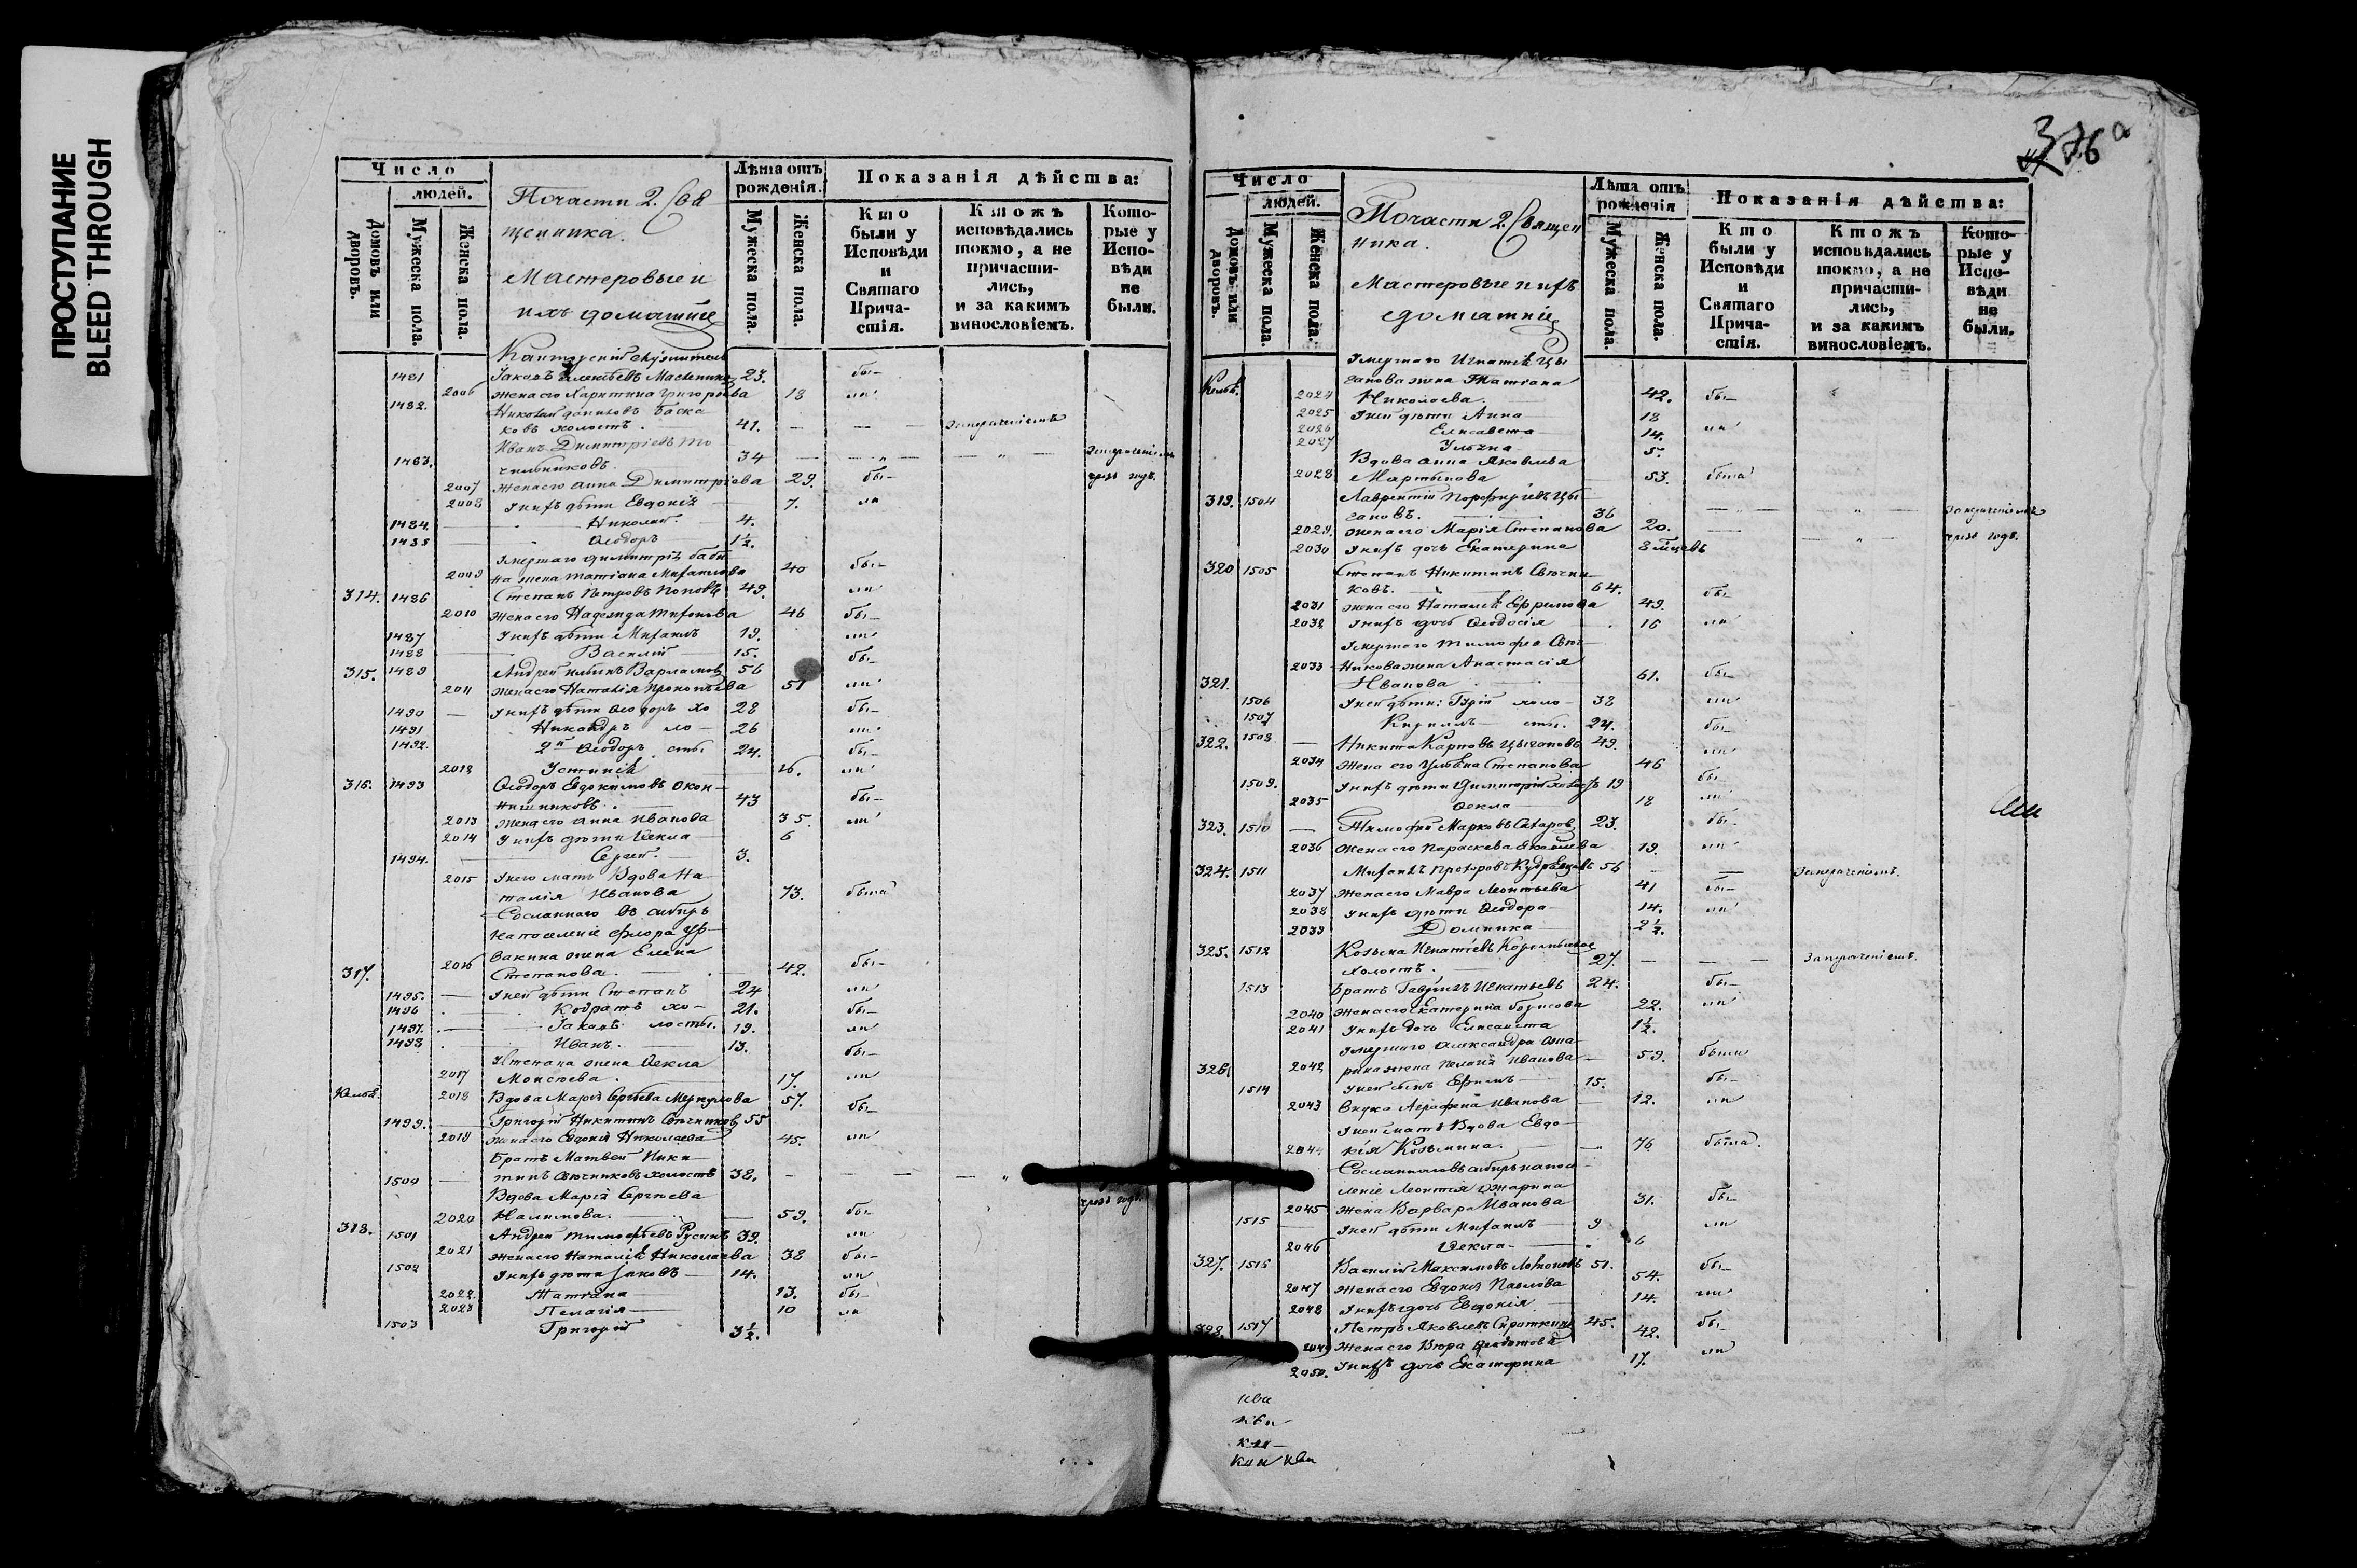 ПРОСТУПАНИЕ
BLEED THROUGH
376 а
Число
людей.
Домовъ или дворовъ.
Мужеска пола.
Женска пола.
Почасти 2. Свя
щенника.
Мастеровые и
ихъ домашніе
Лѣта отъ рожденія.
Мужеска пола.
Женска пола.
Показанія дѣйства:
Кто были у Исповѣди и Святаго Причастія.
Ктожъ исповѣдались токмо, а не причастились, и за какимъ винословіемъ.
Которые у Исповѣди не были.
1481 23. бы-
2006 Жена его Харитина Григорьева 18 ли
1482. Николай Баска
ковъ холостъ. 41. — — —
Иванъ Димитріевъ То
1483. чильниковъ. 34
2007 Жена его Анна Димитріева 29. бы- чрезъ годъ.
2008 У нихъ дѣти Евдокія 7. ли
1484. Николай. 4.
1485 Ѳеодоръ 1½.
Умершаго Димитрія Баби
2009 на жена Татіана Михайлова 40 бы-
314. 1486 Степанъ Петровъ Поповъ 49. ли
2010 Жена его Надежда 46 бы-
1487 У нихъ дѣти Михаилъ 19. ли
1488 Василій 15. бы-
315. 1489 Андрей Ильинъ Варламовъ 56
2011 Жена его Наталія Прокопьева 51 ли
1490 У нихъ дѣти Ѳеодоръ хо 28 бы-
1491 Никандръ ло- 26 ли
1492. 2й Ѳеодоръ сты. 24. бы-
2012 Устинія 16. ли
316. 1493 Ѳеодоръ Евдокимовъ Окон-
нишниковъ. 43 бы-
2013 Жена его Анна Иванова 35. ли
2014 У нихъ дѣти Ѳекла 6
1494. Сергей. 3.
2015 У него мать Вдова На
талія Иванова 73. была
Сосланнаго въ Сибирь
на поселеніе Флора
2016 жена Елена
317. Степанова. 42. бы-
1495. У ней дѣти Степанъ 24 ли
1496 Кодратъ хо- 21. бы-
1497. Іаковъ лосты. 19. ли
1498 Иванъ. 13. бы-
У Степана жена Ѳекла
2017 Моисеева. 17. ли
2018 Вдова Марія Сергѣева Меркулова 57. бы-
1499. Григорій Никитинъ 55
2019 Жена его Евдокія Николаева 45. ли
Братъ Матвей Ники
1500 тинъ холостъ 38.
Вдова Марія Сергѣева чрезъ годъ.
2020 Калинова. 59. бы-
318. 1501 Андрей Тимофѣевъ Русинъ 39. ли
2021 Жена его Наталія Николаева 38 бы-
1502 У нихъ дѣти Іаковъ 14. ли
2022. Татіана 13. бы-
2023 Пелагія 10 ли
1503 Григорій 3½.
Число
людей.
Домовъ или дворовъ.
Мужеска пола.
Женска пола.
Почасти 2. Священ
ника.
Мастеровые и ихъ
домашніе
Лѣта отъ рожденія
Мужеска пола.
Женска пола.
Показанія дѣйства:
Кто были у Исповѣди и Святаго Причастія.
Ктожъ исповѣдались токмо, а не причастились, и за какимъ винословіемъ.
Которые у Исповѣди не были.
Умершаго Игнатія Цы
ганова жена Татіана
2024 Николаева. 42. бы-
2025 У ней дѣти Анна 18
2026 Елисавета 14. ли
2027 Ульяна 5.
Вдова Анна Яковлева
2028 Мартынова 53. была
319. 1504 Лаврентій Порфирьевъ Цы
гановъ. 36
2029. Жена его Марія Степанова 20. чрезъ годъ.
2030 У нихъ дочь Екатерина 8 мѣсцевъ
320 1505 Степанъ Никитинъ Свѣчни-
ковъ. 64. бы-
2031 Жена его Наталія Ефремова 49.
2032 У нихъ дочь Ѳеодосія 16 ли
Умершаго Тимофея Свѣч-
2033 никова жена Анастасія
321. Иванова 61. бы-
1506 У ней дѣти: Гурій холо- 38 ли
1507 Кириллъ сты. 24. бы-
322. 1508 Никита Карповъ Цыгановъ 49. ли
2034 Жена его Ульяна Степанова 46
1509. У нихъ дѣти Димитрій 19 бы-
2035 Ѳекла 18 ли
323. 1510 Тимофей Марковъ 23. бы-
2036 Жена его Параскева Яковлева 19. ли
324. 1511 Михаилъ Прохоровъ 56
2037 Жена его Мавра Леонтьева 41 бы-
2038 У нихъ дѣти Ѳеодора 14. ли
2039 Домника 2½.
325. 1512 Козьма Игнатіевъ
холостъ. 27. — — —
1513 Братъ Гаврилъ Игнатьевъ 24. бы-
2040 Жена его Екатерина Борисова 22. ли
2041 У нихъ дочь Елисавета 1½.
Умершаго Александра Ожа-
326. 2042 рина жена Пелагія Иванова 59. были
1514 У ней сынъ Ефимъ 15. бы-
2043 Внука Аграфена Иванова 12. ли
У ней мать Вдова Евдо-
2044 кія Козьмина. 76 была.
Сосланнаго въ Сибирь на посе
леніе Леонтія Ожарина
2045 жена Варвара Иванова 31. бы-
1515 У ней дѣти Михаилъ 9 ли
2046 Ѳекла 6
327. 1516 Василій Максимовъ 51. бы-
2047 Жена его Евдокія Павлова 54.
2048 У нихъ дочь Евдокія 14. ли
328. 1517 Петръ Яковлевъ Сироткинъ 45. бы-
2049 Жена его 42.
2050. У нихъ дочь Екатерина 17. ли